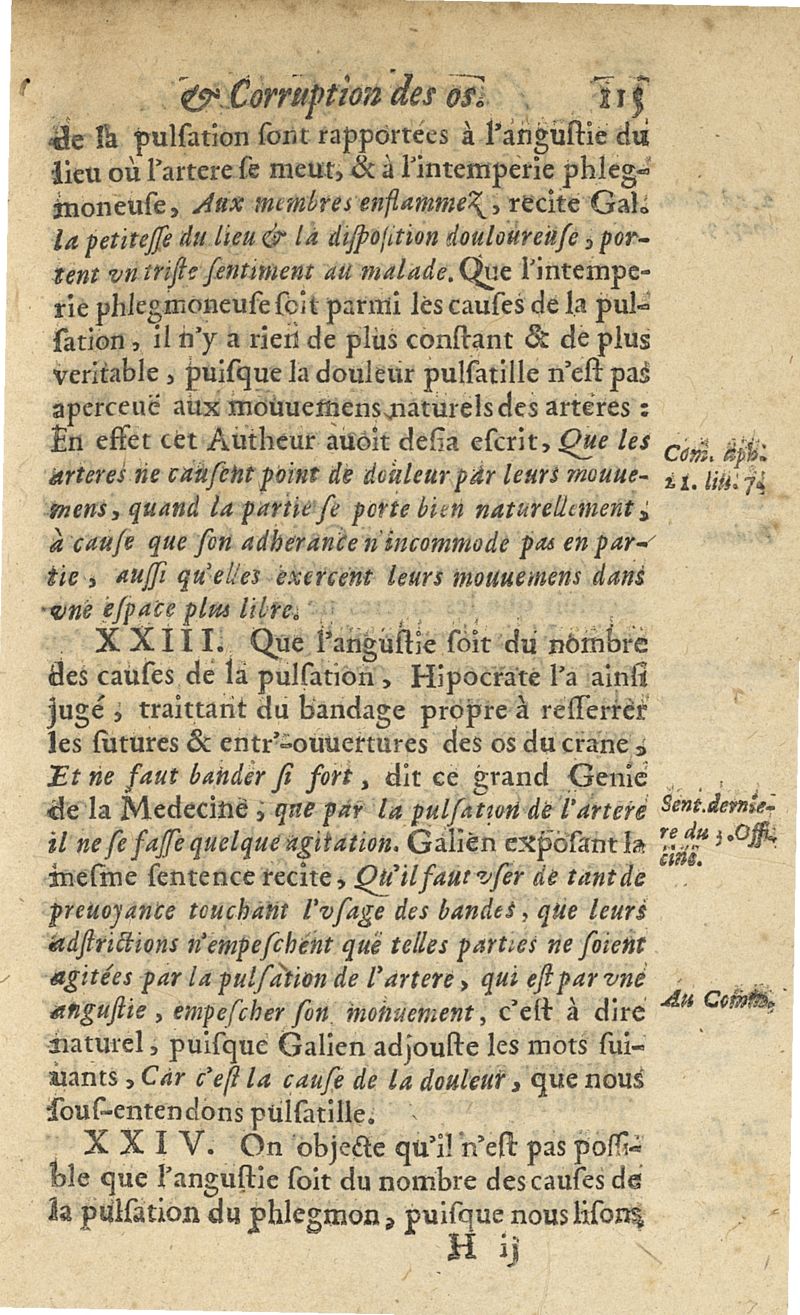 & Corruption des os. 115
de la pulſation ſont rapportées à l'anguſtie du
lieu où l'artere ſe meut, & à l'intemperie phleg-
moneuſe, Aux membres enflammez, recite Gal.
la petiteſſe du lieu & la diſpoſition douloureuſe, por-
tent vn triſte ſentiment au malade. Que l'intempe-
rie phlegmoneuſe ſoit parmi les cauſes de la pul-
ſation, il n'y a rien de plus conſtant & de plus
veritable, puiſque la douleur pulſatille n'eſt pas
aperceuë aux mouuemens naturels des arteres :
En effet cet Autheur auoit deſia eſcrit, Que les
arteres ne cauſent point de douleur par leurs mouue-
mens, quand la partie ſe porte bien naturellement,
à cauſe que ſon adherance n'incommode pas en par-
tie, auſſi qu'elles exercent leurs mouuemens dans
vne eſpace plus libre.
Com. Aph.
21. liu. 7.
XXIII. Que l'anguſtie ſoit du nombre
des cauſes de la pulſation, Hipocrate l'a ainſi
jugé, traittant du bandage propre à reſſerrer
les ſutures & entr'-ouuertures des os du crane,
Et ne faut bander ſi fort, dit ce grand Genie
de la Medecine, que par la pulſation de l'artere
il ne ſe faſſe quelque agitation. Galien expoſant la
meſme ſentence recite, Qu'il faut vſer de tant de
preuoyance touchant l'vſage des bandes, que leurs
adſtrictions n'empeſchent que telles parties ne ſoient
agitées par la pulſation de l'artere, qui eſt par vne
anguſtie, empeſcher ſon monuement, c'eſt à dire
naturel, puiſque Galien adjouſte les mots ſui-
uants, Car c'eſt la cauſe de la douleur, que nous
ſous-entendons pulſatille.
Sent. dernie-
re du 3. Offi
cine.
Au Comm.
XXIV. On objecte qu'il n'eſt pas poſſi-
ble que l'anguſtie ſoit du nombre des cauſes de
la pulſation du phlegmon, puiſque nous liſons
H ij